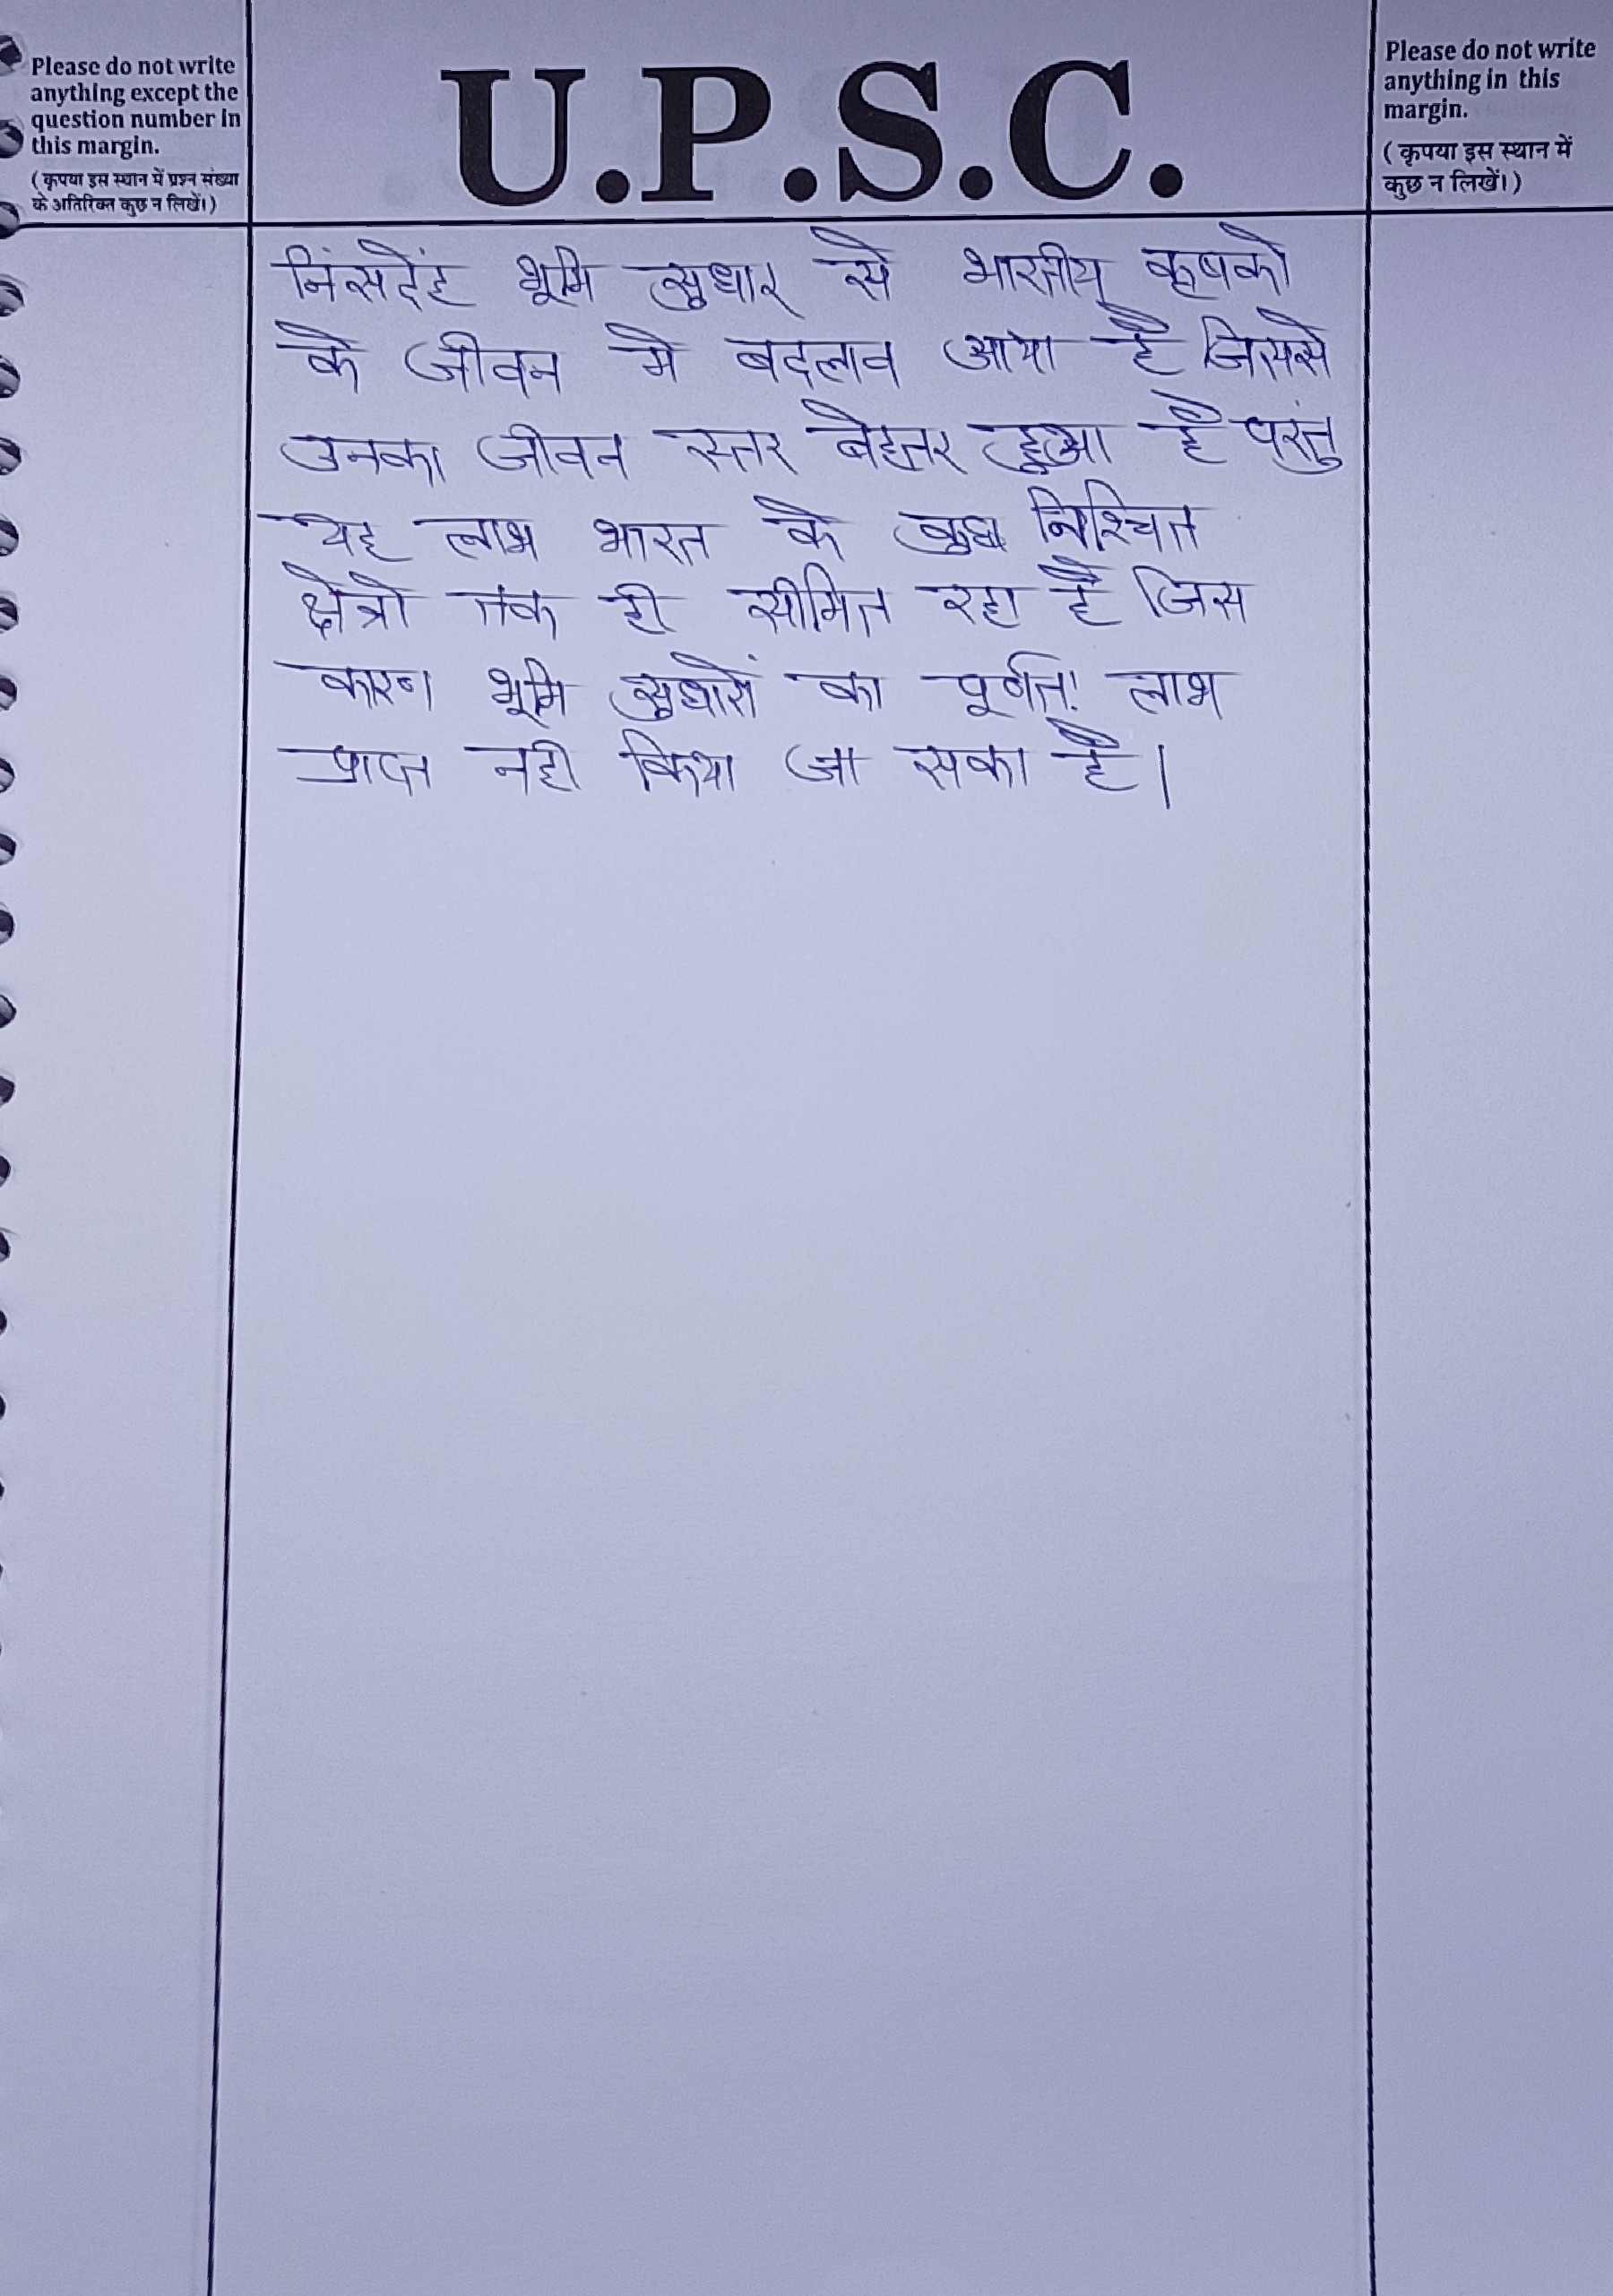 Please do not write
anything except the
question number in
this margin.
(कृपया इस स्थान में प्रश्न संख्या
के अतिरिक्त कुछ न लिखें।)
U.P.S.C.
Please do not write
anything in this
margin.
(कृपया इस स्थान में
कुछ न लिखें।)
निंसदेंह भूमि सुधार से भारतीय कृषको
के जीवन मे बदलाव आया है जिससे
उनका जीवन स्तर बेहतर हुआ है परंतु
यह लाभ भारत के कुछ निश्चित
क्षेत्रो तक ही सीमित रहा है जिस
कारण भूमि सुधारों का पूर्णत: लाभ
प्राप्त नही किया जा सका है।